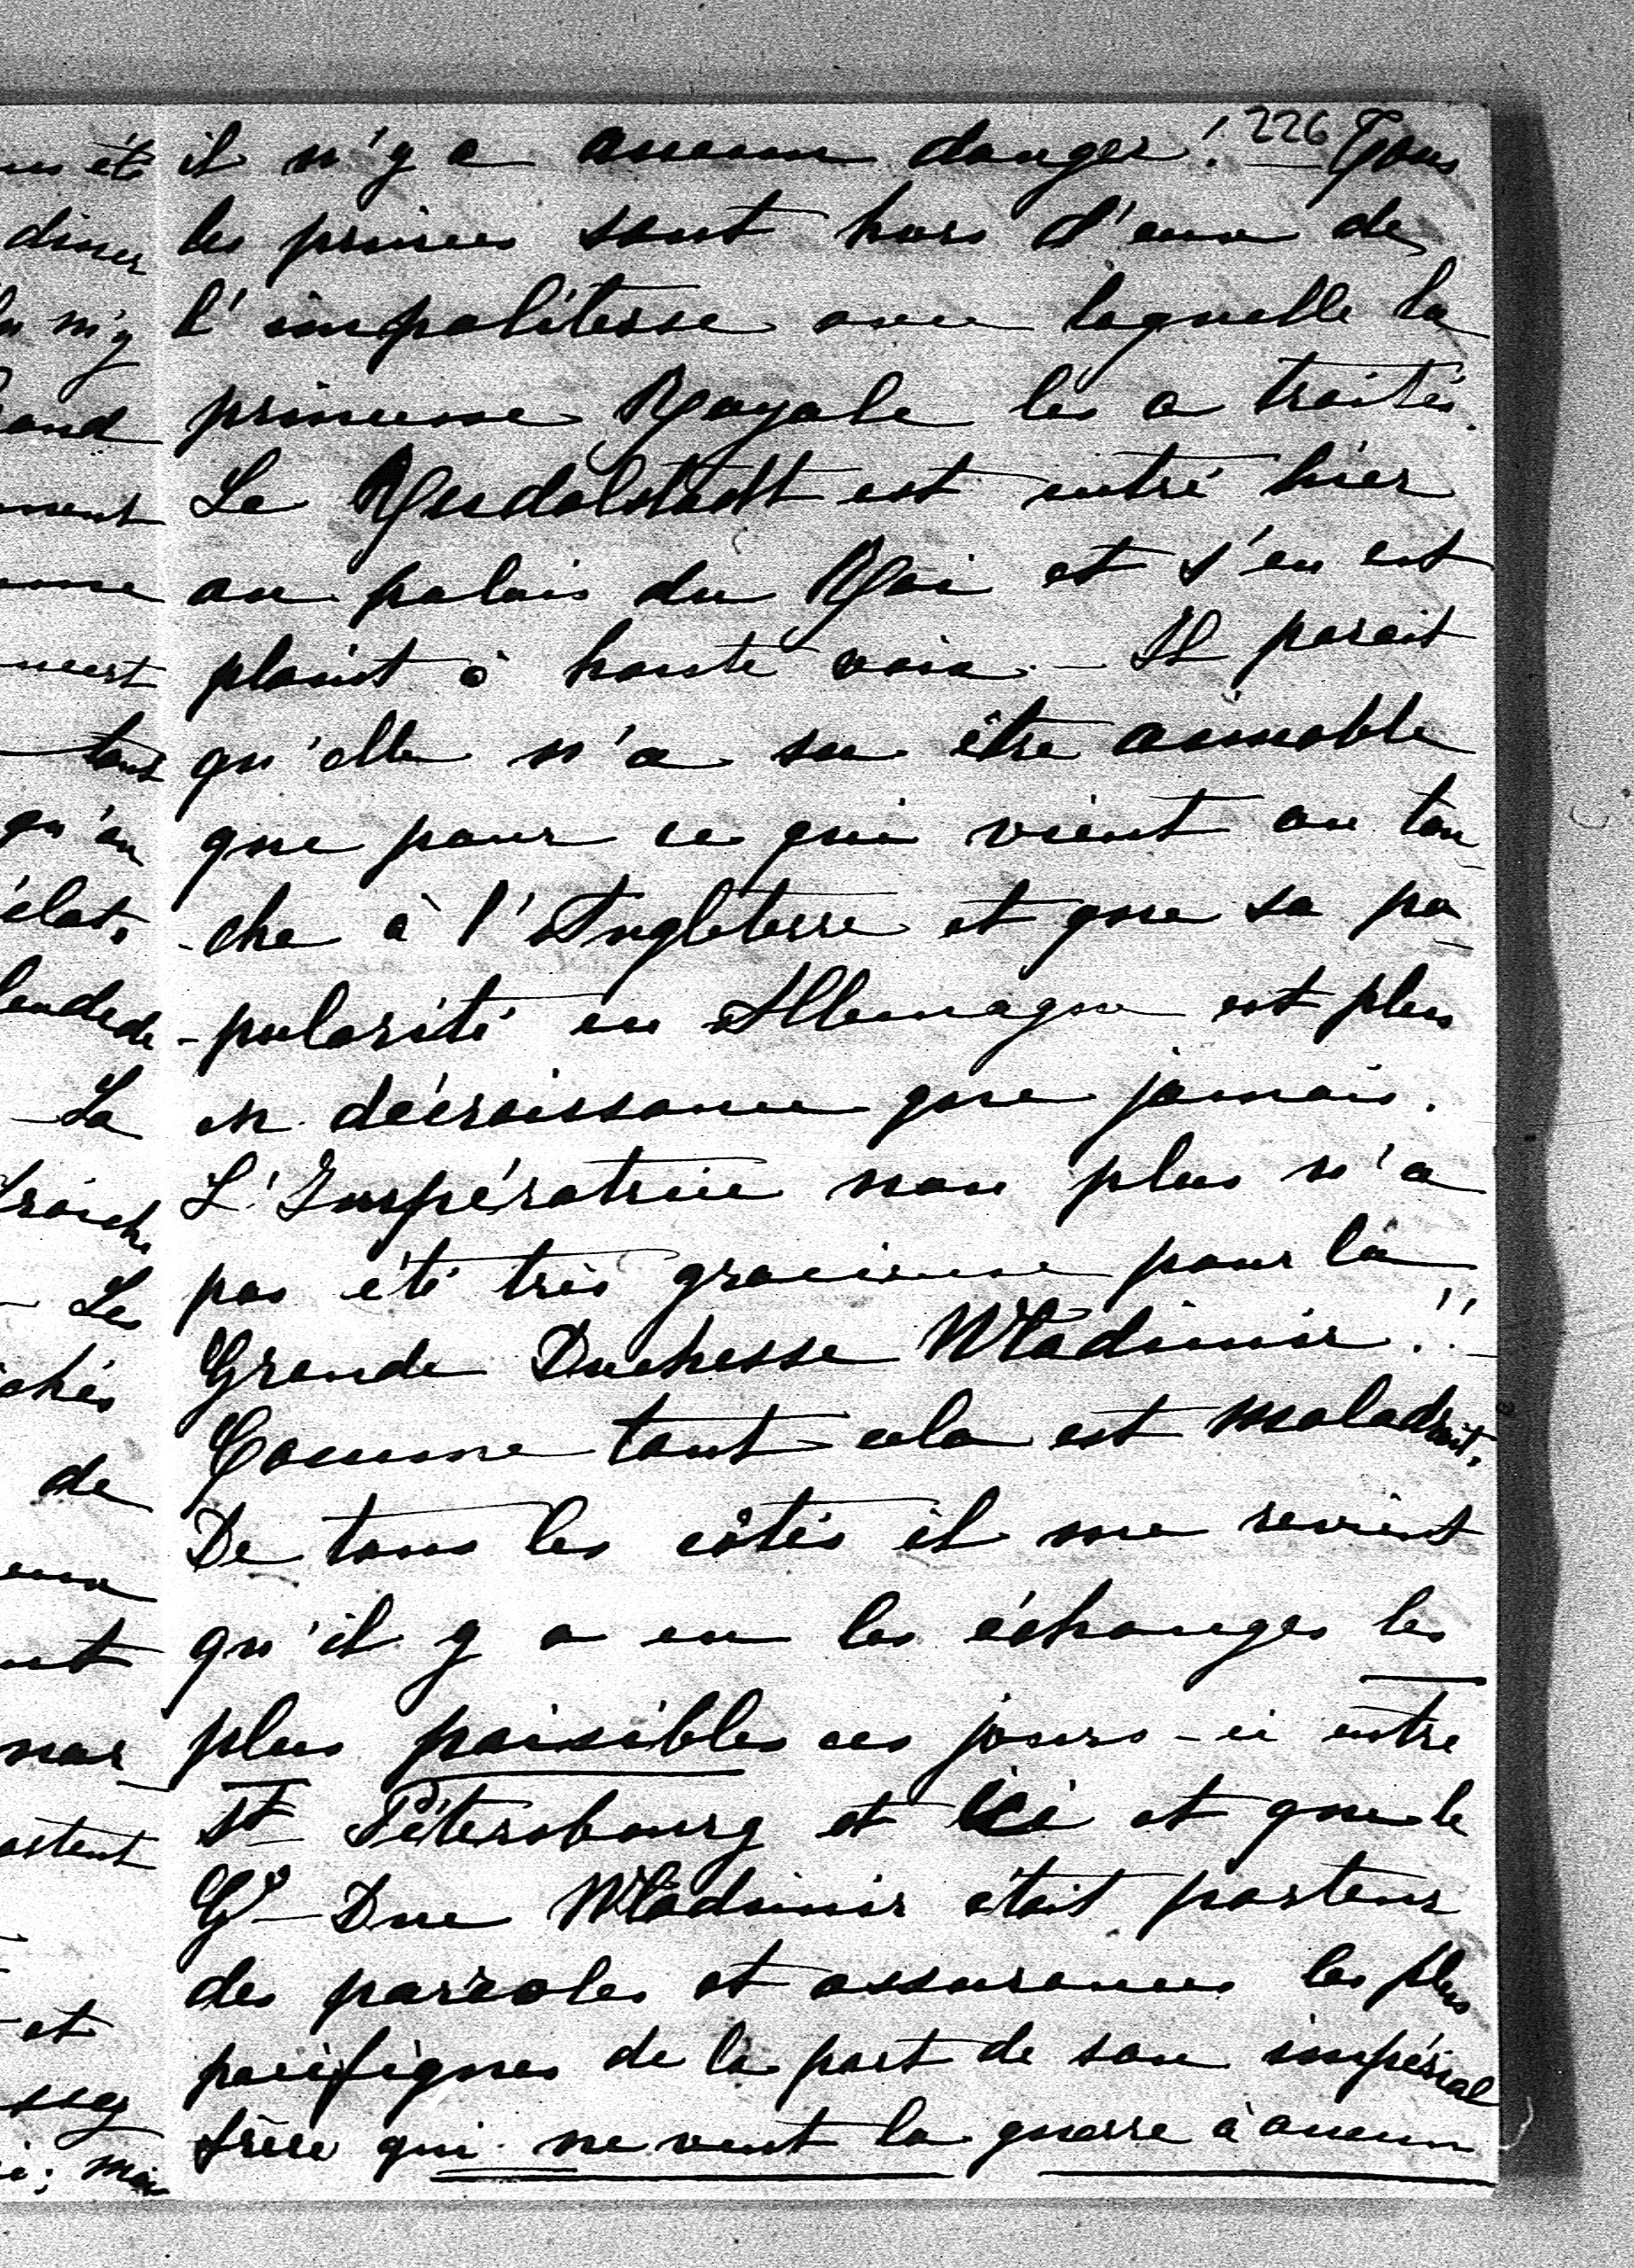 226
il n'y a aucun danger! — Tous
les princes sont hors d'eux de
l'impolitesse avec laquelle la
princesse Royale les a traités.
Le Rudolstadt est entré hier
au palais du Roi et s'en est
plaint à haute voix. — Il parait
qu'elle n'a su être aimable
que pour ce qui vient ou tou-
-che à l'Angleterre et que sa po-
-pularité en Allemagne est plus
en décroissance que jamais.
L'Impératrice non plus n'a
pas été très gracieuse pour la
Grande Duchesse Wladimir!! —
Comme tout cela est maladroit.
De tous les côtés il me revient
qu'il y a eu les échanges les
plus paisibles ces jours-ci entre
St Pétersbourg et ici et que le
Gd Duc Wladimir était porteur
des paroles et assurances les plus
pacifiques de la part de son impérial
frère qui ne veut la guerre à aucun